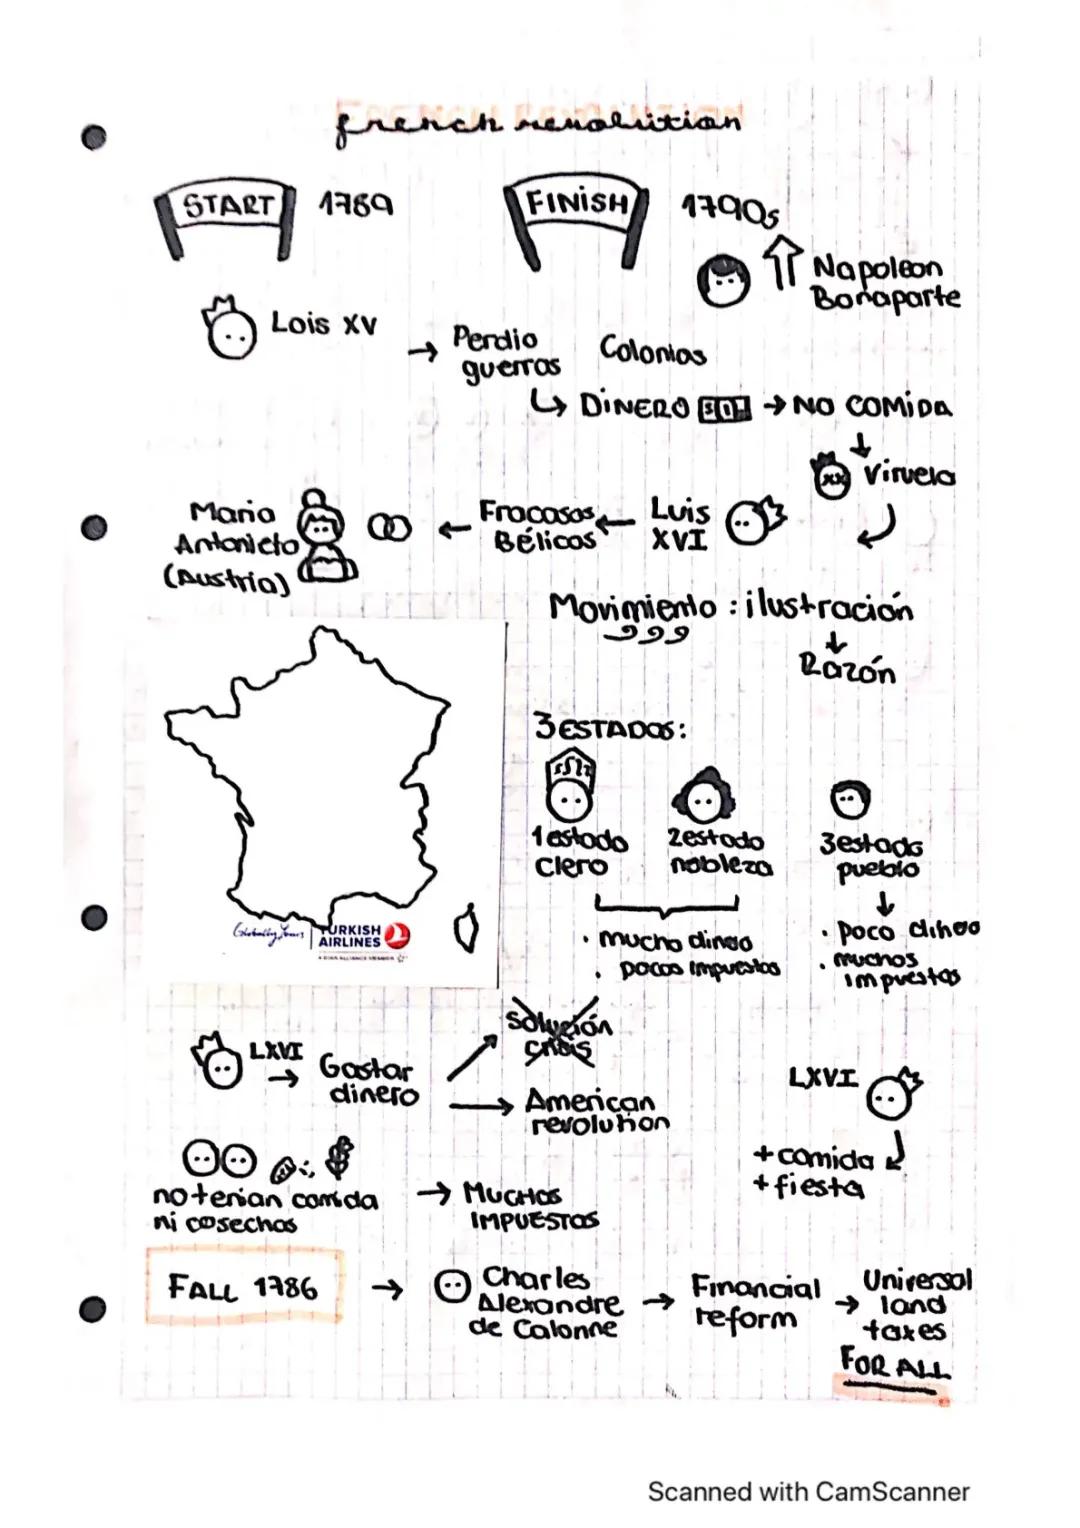 FRENCH REVOLUTION
french revolution
START 1789
FINISH 1790s
Napoleon
Bonaparte
Lois XV
→ Perdio
guerras
Colonias
↳ DINERO → NO COMIDA
Viruela
Luis
XVI
← Fracasos
Bélicos
←
Maria
Antonieta
(Austria)
Movimiento : ilustración
Razón
3 ESTADOS:
1 estado
clero
2 estado
nobleza
3 estado
pueblo
· mucho dinero
· pocos impuestos
· poco dinero
· muchos
impuestos
Globally Yours | TURKISH
AIRLINES
A STAR ALLIANCE MEMBER
LXVI
→ Gastar
dinero
solución
crisis
American
revolution
LXVI
+ comida
+ fiesta
no tenian comida
ni cosechas
→ MUCHOS
IMPUESTOS
FALL 1786
→ Charles
Alexandre
de Calonne
→ Financial
reform
→ Universal
land
taxes
FOR ALL
Scanned with CamScanner